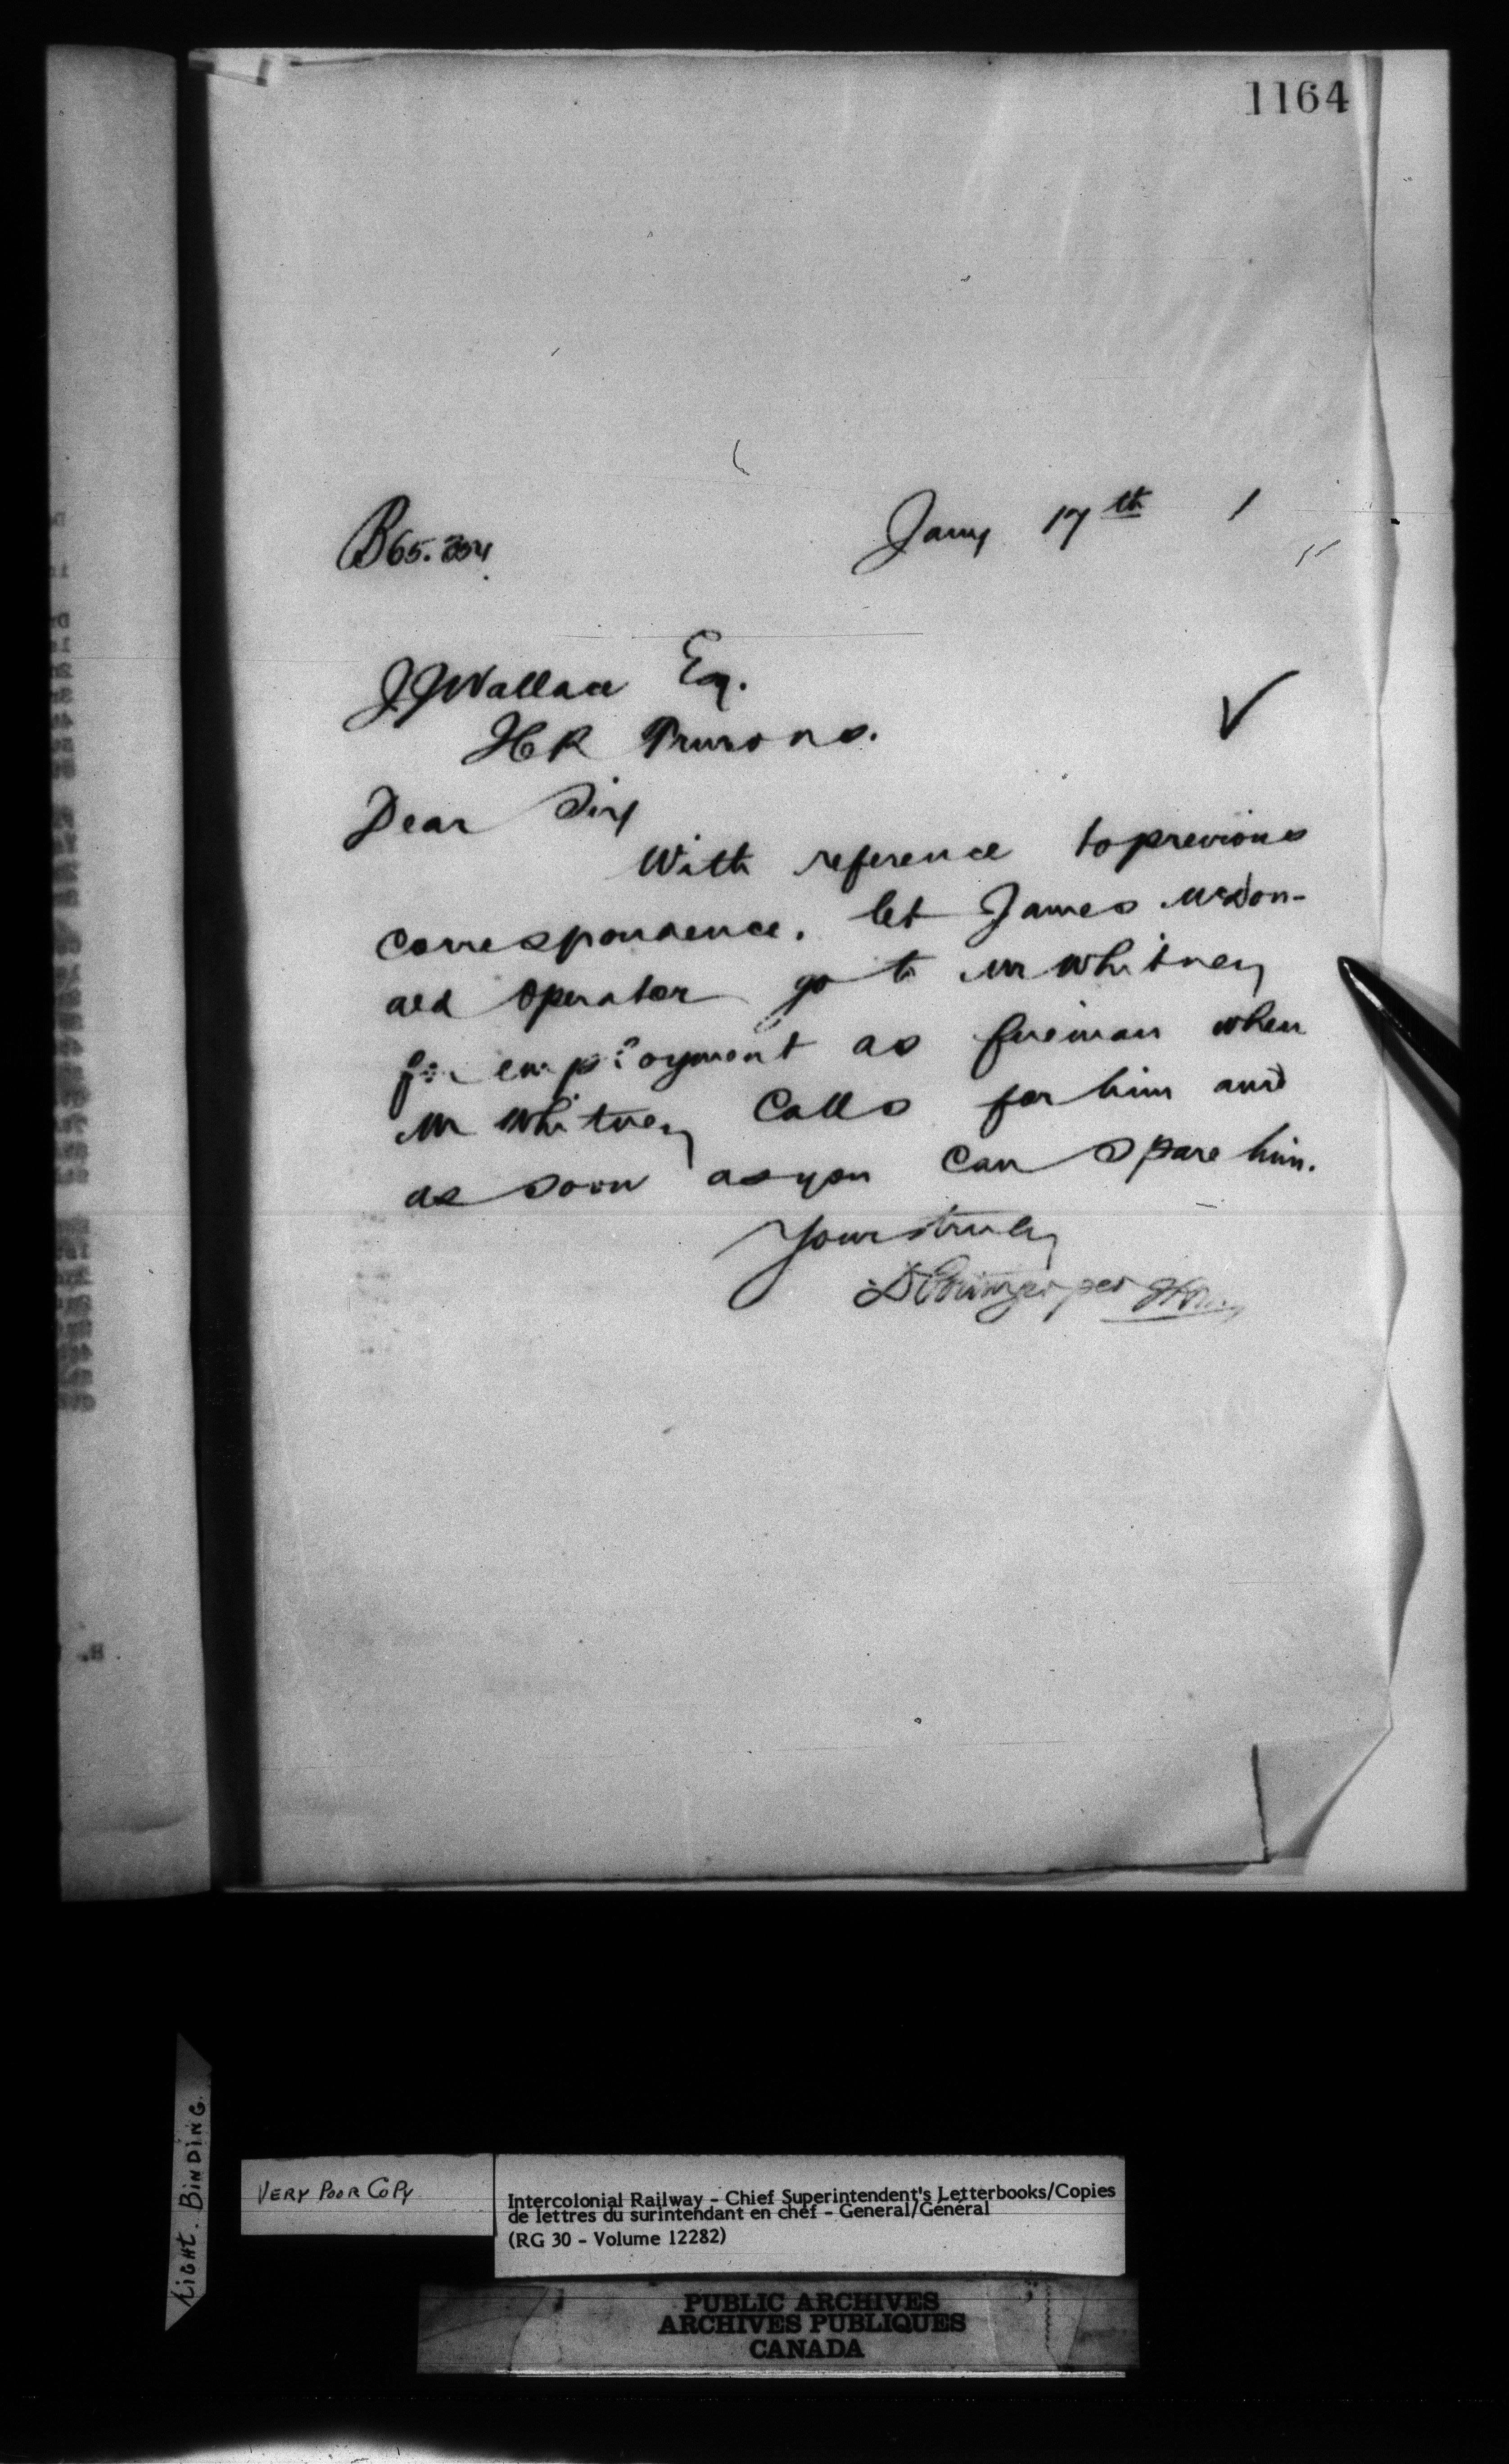 1164
B65.
Jany 17th 1
J J Wallace Esq.
Dear Sir
With reference to previous
correspondence. let James McDon-
ald Operator go to Mr Whitney
for employment as fireman when
Mr Whitney Calls for him and
as soon as you can spare him.
Yours truly
per
LIGHT. BINDING.
VERY POOR COPY
Intercolonial Railway - Chief Superintendent's Letterbooks/Copies
de lettres du surintendant en chef - General/Général
(RG 30 - Volume 12282)
PUBLIC ARCHIVES
ARCHIVES PUBLIQUES
CANADA